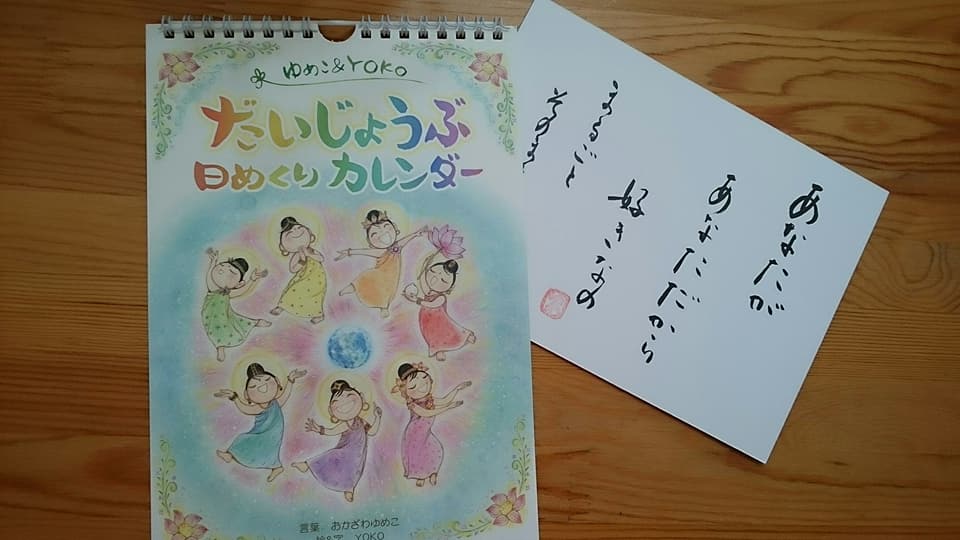 ゆめこ&YOKO
だいじょうぶ
日めくりカレンダー
言葉 おかざわゆめこ
YOKO
あなたが
あなただから
好きなの
まるごと
そのまま